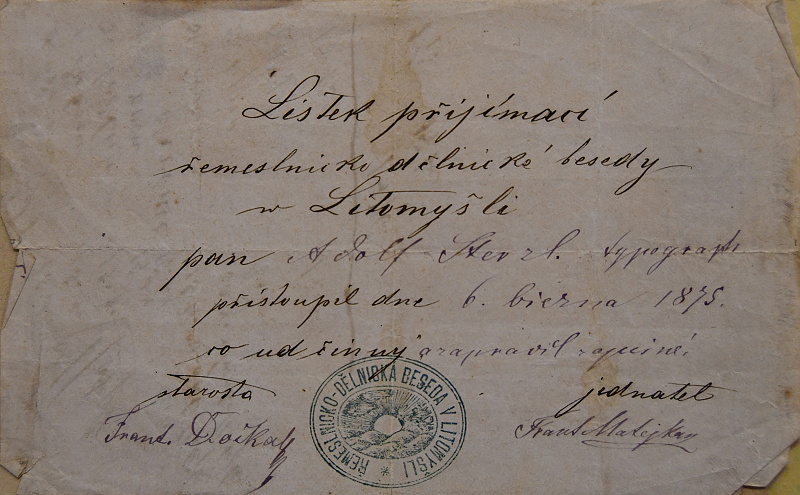 Lístek přijímací
řemeslnicko dělnické besedy
w Litomyšli
pan Adolf typograph
přistoupil dne 6. března 1875.
co ud činný a zapravil
starosta jednatel
Frant. Frant. Matějka
ŘEMESLNICKO-DĚLNICKÁ BESEDA V LITOMYŠLI *